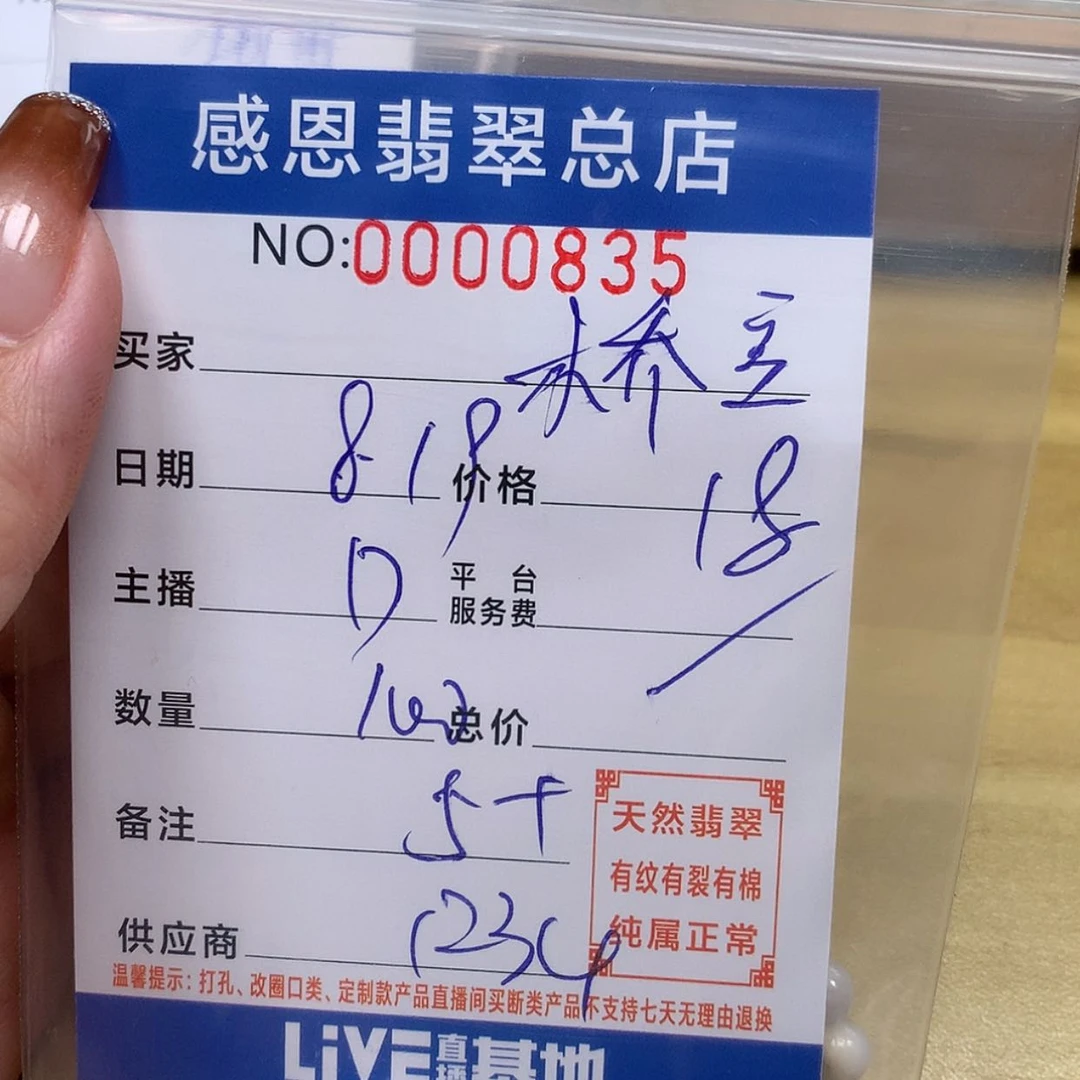 感恩翡翠总店
NO:0000835
买家
日期 8-19 价格 18
主播 D 平台服务费
数量 总价
备注 5千
供应商 1234
天然翡翠
有纹有裂有棉
纯属正常
温馨提示:打孔、改圈口类、定制款产品直播间买断类产品不支持七天无理由退换
LiVE直播基地